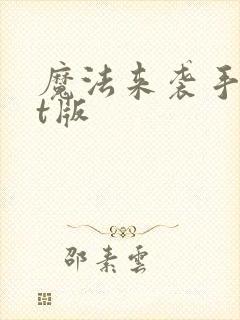 魔法来袭手
t版
邵素雲